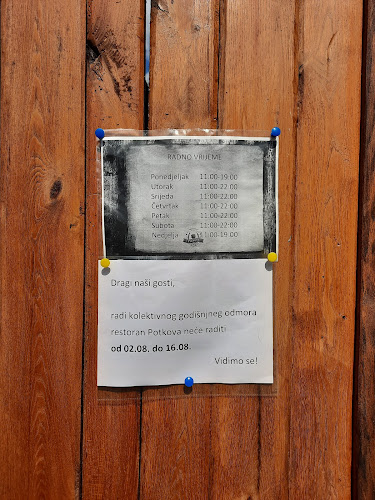 RADNO VRIJEME
Ponedjeljak 11:00-19:00
Utorak 11:00-22:00
Srijeda 11:00-22:00
Četvrtak 11:00-22:00
Petak 11:00-22:00
Subota 11:00-22:00
Nedjelja 11:00-19:00
Dragi naši gosti,
radi kolektivnog godišnjneg odmora
restoran Potkova neće raditi
od 02.08. do 16.08.
Vidimo se!